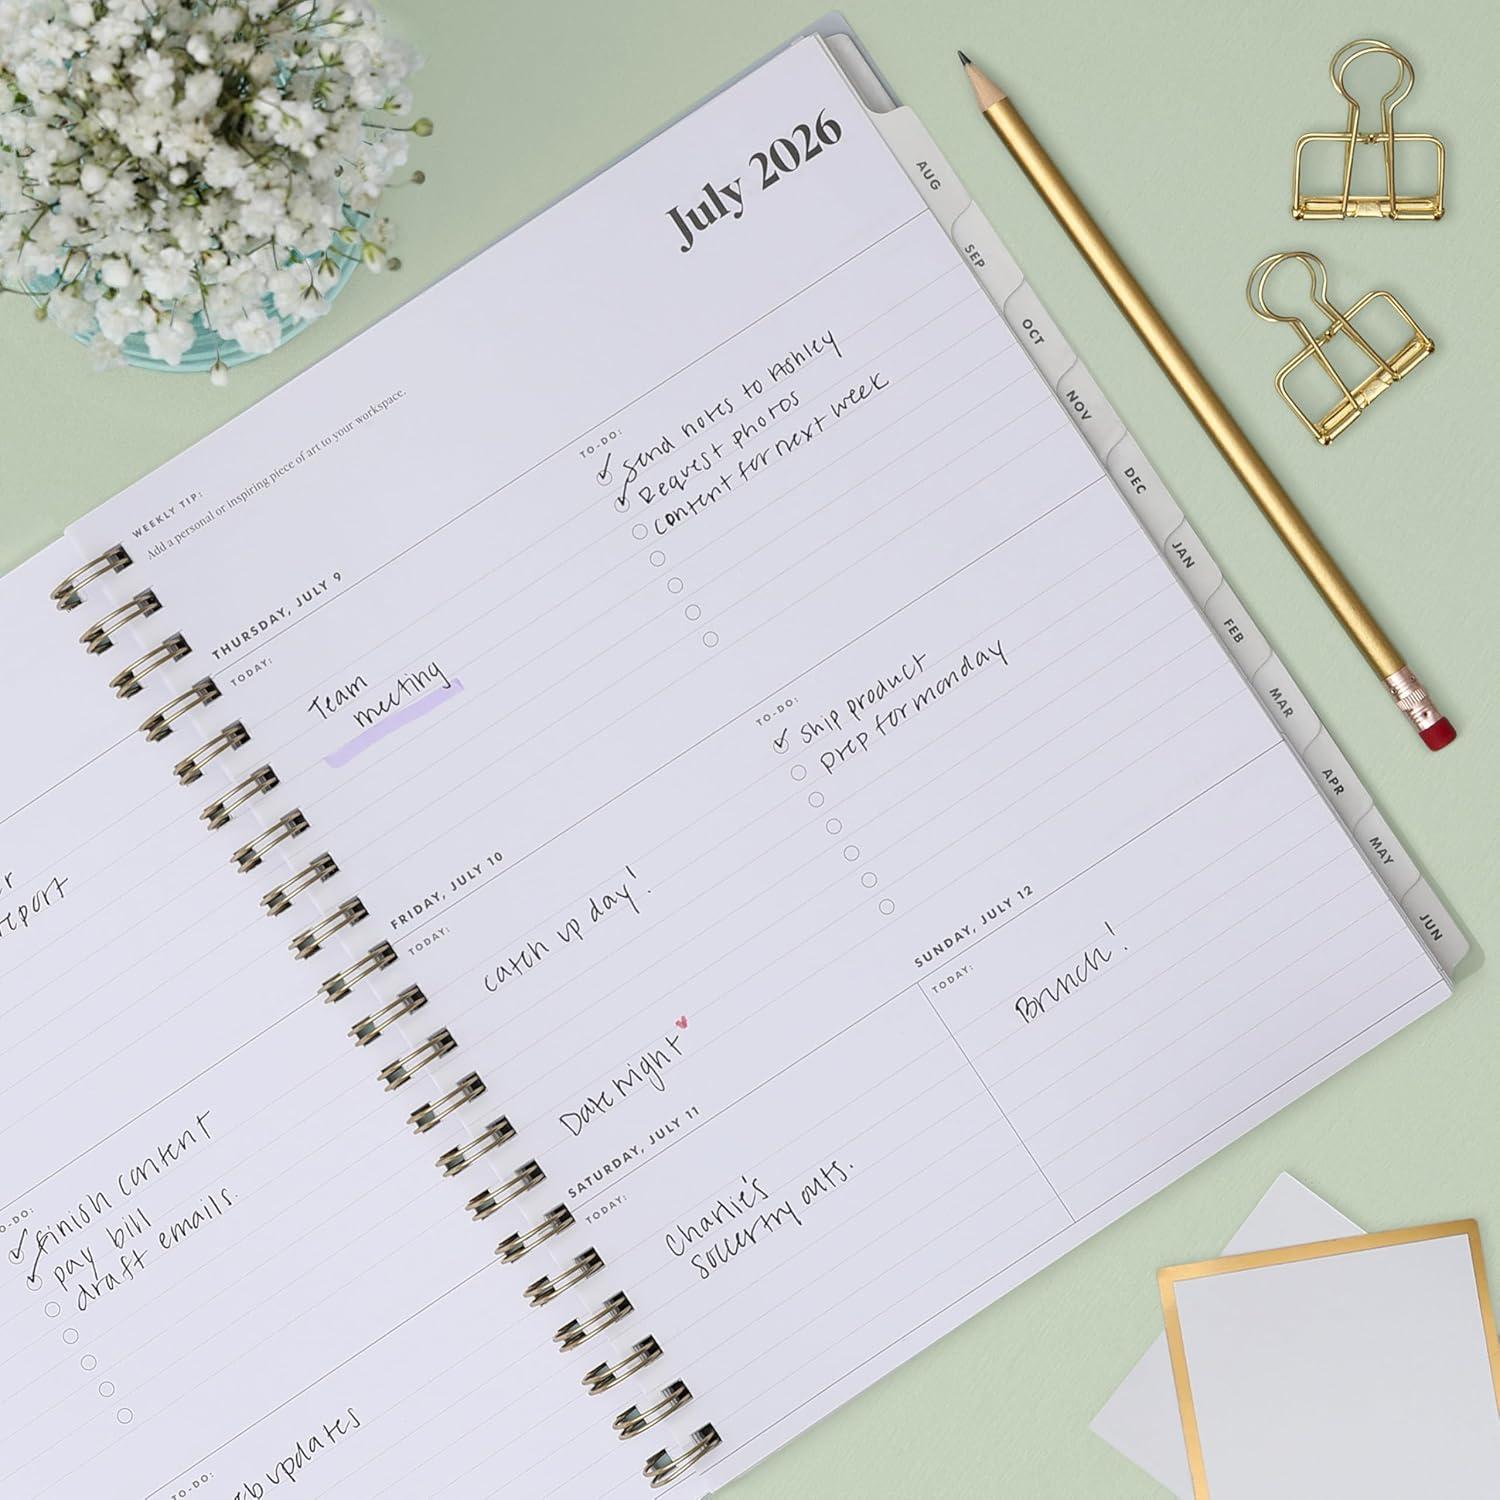 July 2026
WEEKLY TIP:
Add a personal or inspiring piece of art to your workspace.
THURSDAY, JULY 9
TODAY:
Team
meeting
TO-DO:
Send notes to Ashley
Request photos
content for next week
FRIDAY, JULY 10
TODAY:
catch up day!
Date night
TO-DO:
ship product
prep for monday
SATURDAY, JULY 11
TODAY:
Charlie's
soccer try outs.
SUNDAY, JULY 12
TODAY:
Brunch!
AUG
SEP
OCT
NOV
DEC
JAN
FEB
MAR
APR
MAY
JUN
report
finish content
pay bill
draft emails.
TO-DO:
updates